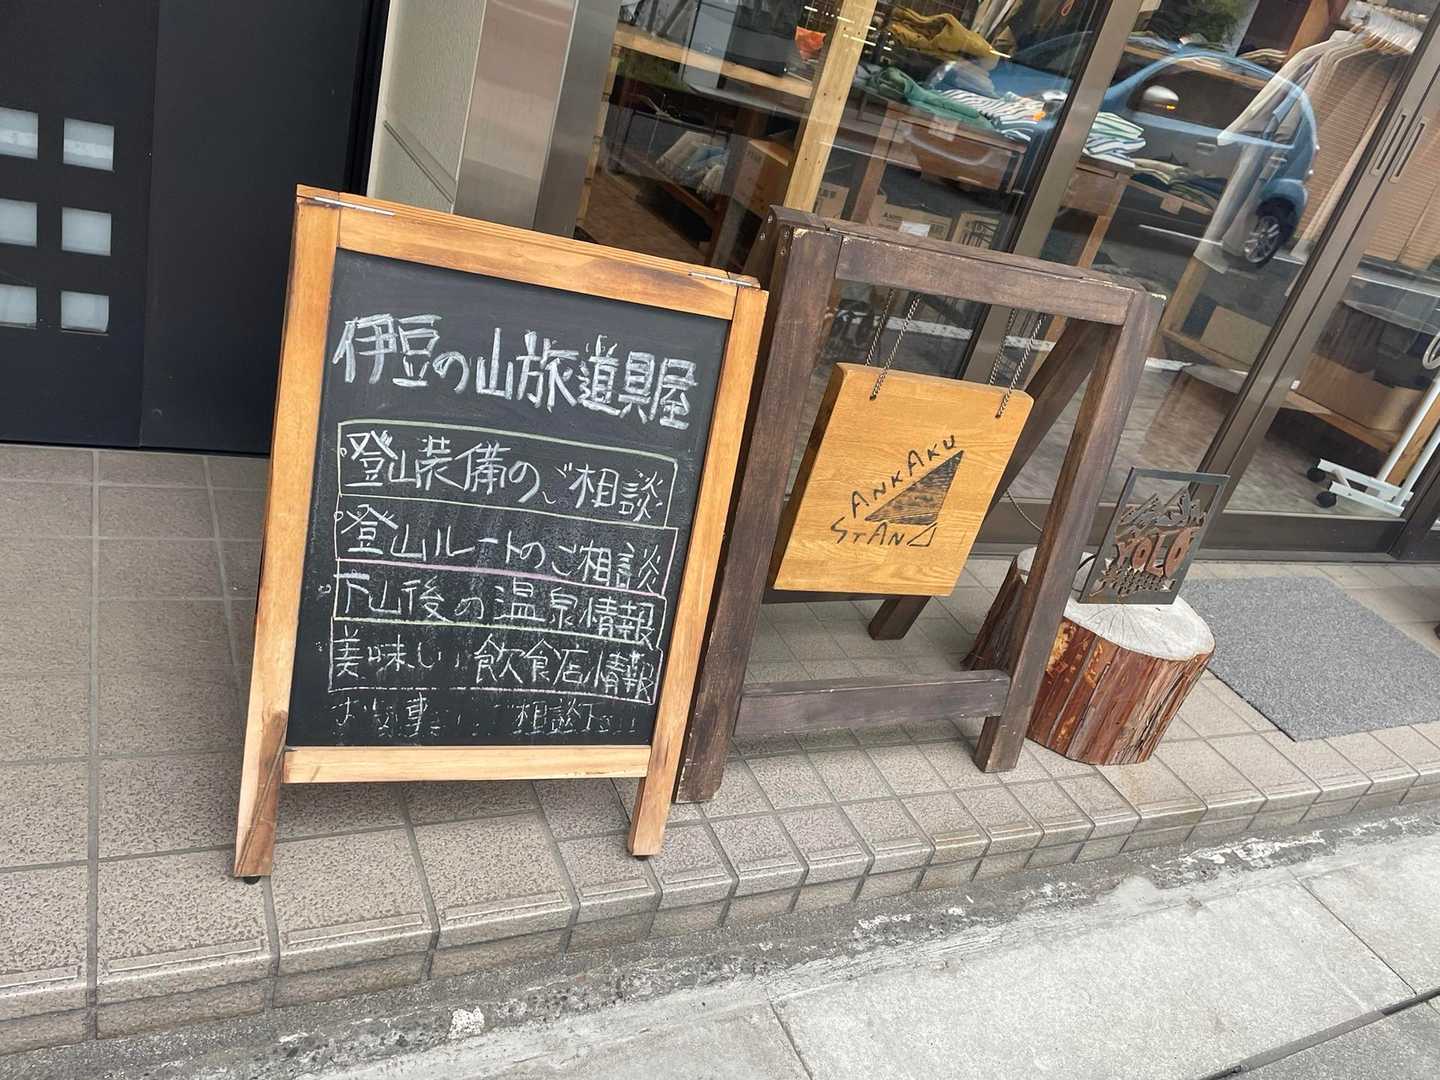 伊豆の山旅道具屋
登山装備のご相談
登山ルートのご相談
下山後の温泉情報
美味しい 飲食店情報
相談下さい
SANKAKU
STAND
YOLO